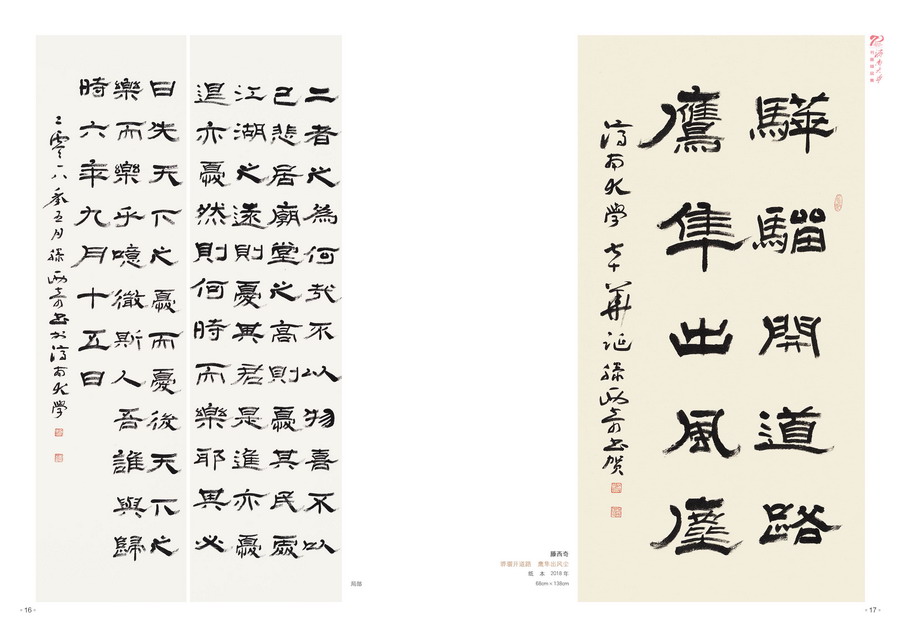 二者之為何哉不以物喜不以
己悲居廟堂之高則憂其民處
江湖之遠則憂其君是進亦憂
退亦憂然則何時而樂耶其必
曰先天下之憂而憂後天下之
樂而樂乎噫微斯人吾誰與歸
時六年九月十五日
二零一八年五月滕西奇書於濟南大學
局部
- 16 -
驊騮開道路
鷹隼出風塵
濟南大學七十華誕滕西奇書賀
滕西奇
骅骝开道路 鹰隼出风尘
纸 本 2018年
68cm×138cm
- 17 -